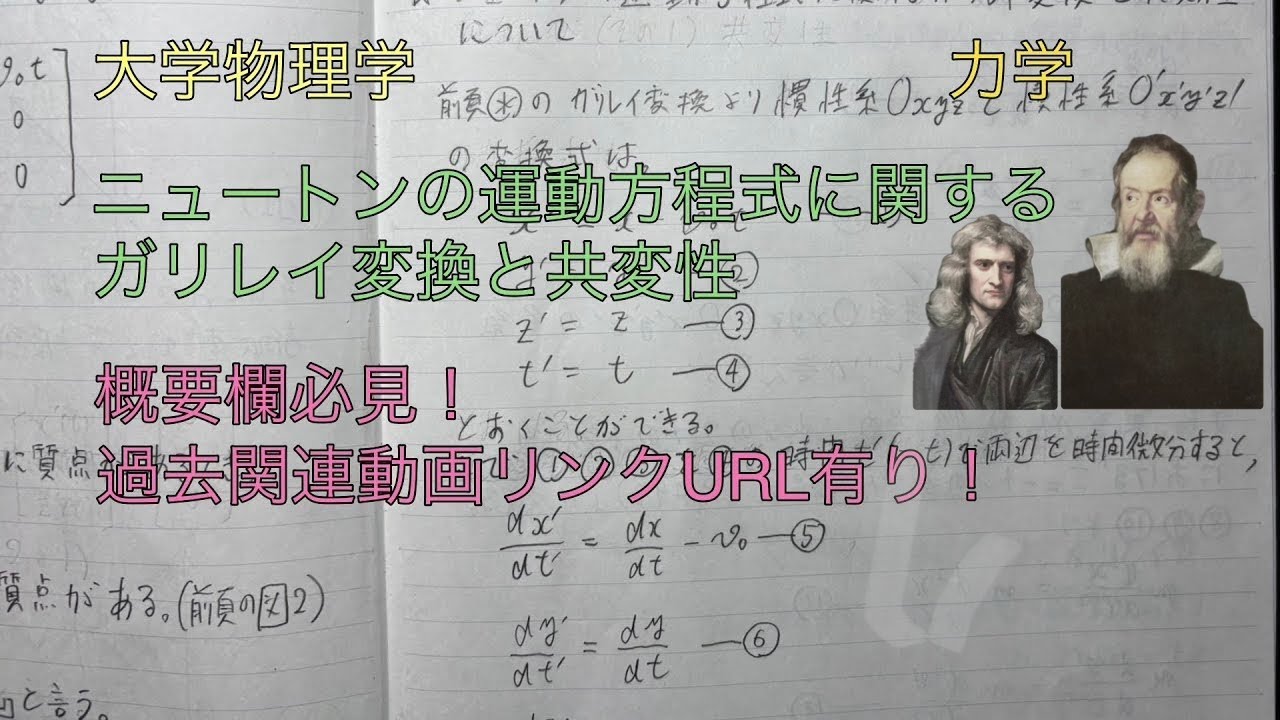 大学物理学
力学
ニュートンの運動方程式に関する
ガリレイ変換と共変性
概要欄必見！
過去関連動画リンクURL有り！
について (その1) 共変性
前頁㊍のガリレイ変換より慣性系Oxyzと慣性系O'x'y'z'
の変換式は。
z' = z ―③
t' = t ―④
とおくことができる。
両辺を時間微分すると,
dx'/dt' = dx/dt - v₀ ―⑤
dy'/dt' = dy/dt ―⑥
v₀t
0
0
に質点が
質点がある。(前頁の図2)
と言う。